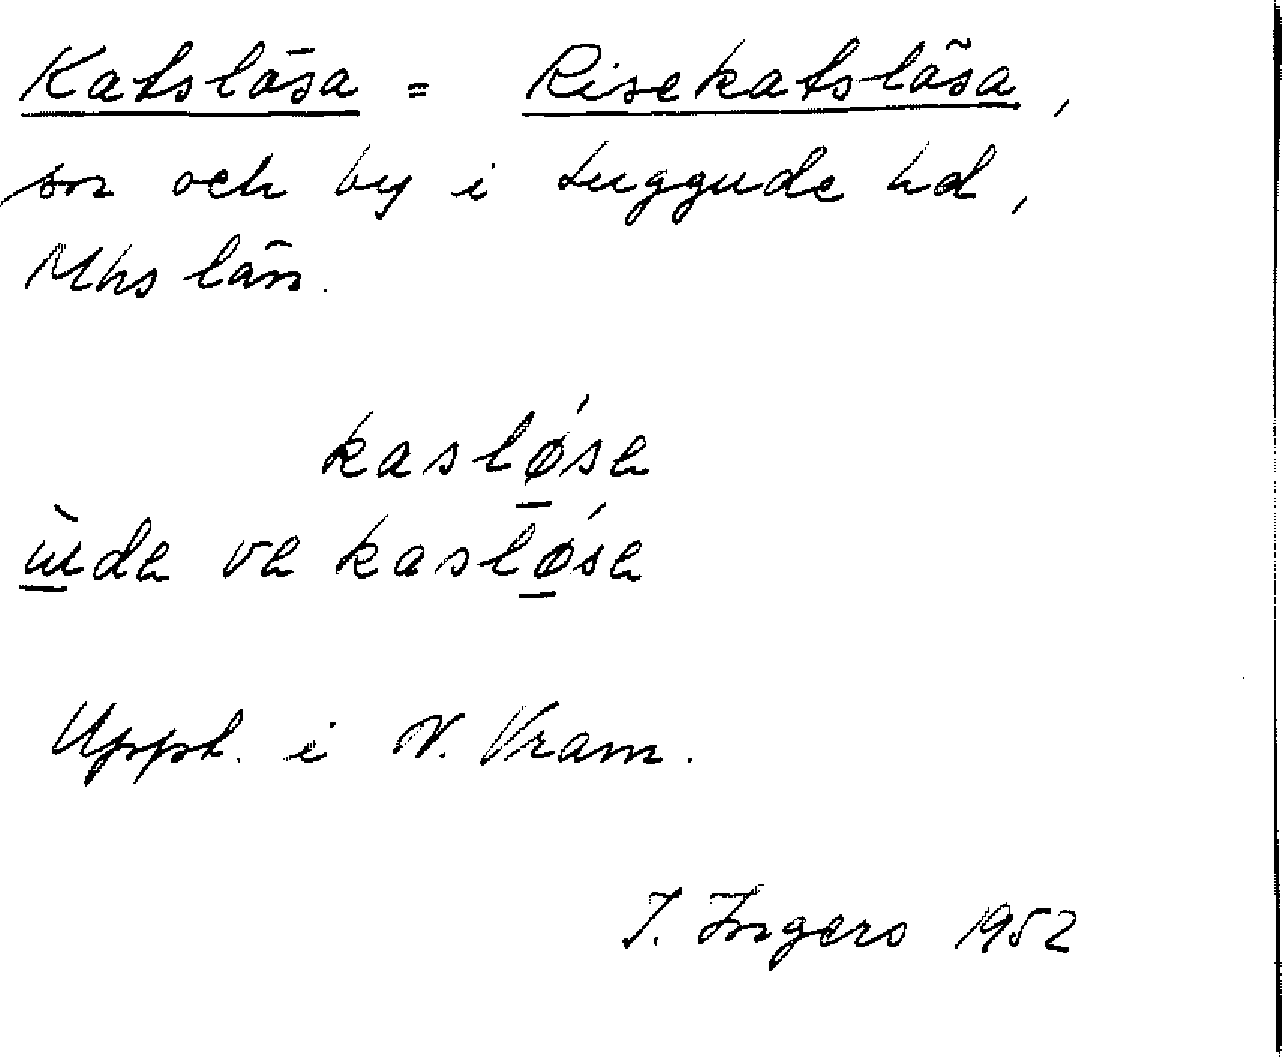 Katslösa = Risekatslösa,
sn och by i Luggude hd,
Mhs län.
kasløsa
ude va kasløsa
Uppt. i N. Vram.
I. Ingers 1952